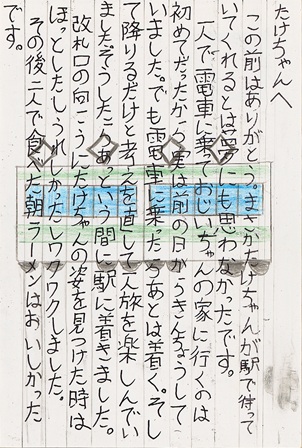 たけちゃんへ
この前はありがとう。まさかたけちゃんが駅で待って
いてくれるとは夢にも思わなかったです。
一人で電車に乗っておじいちゃんの家に行くのは
初めてだったから実は前の日からきんちょうして
いました。でも電車に乗ったらあとは着く。そし
て降りるだけと考えを直して一人旅を楽しんでい
ましたそうしたらあっという間に駅に着きました。
改札口の向こうにたけちゃんの姿を見つけた時は
ほっとしたしうれしかたしワクワクしました。
その後二人で食べた朝ラーメンはおいしかった
です。